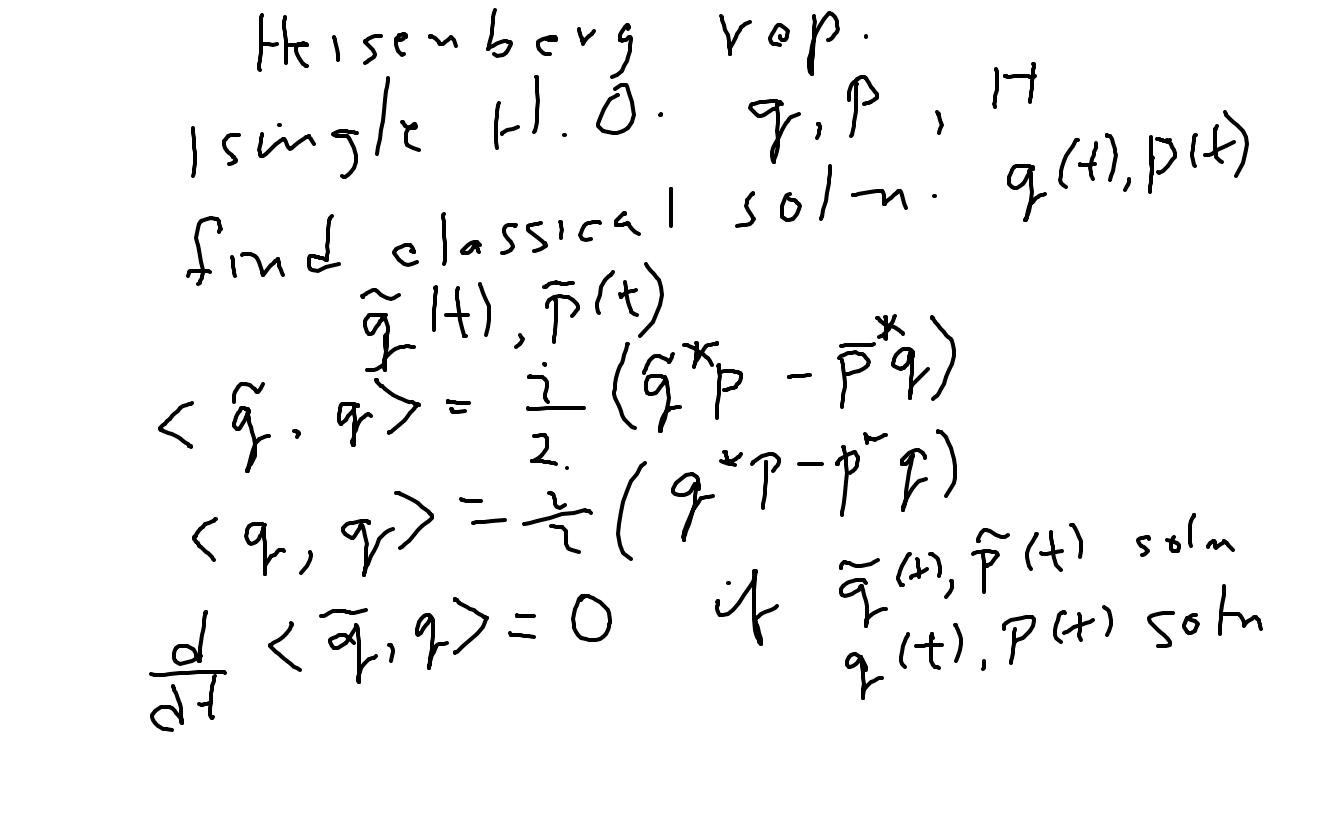 Heisenberg rep.
1 single H.O. q, p, H
find classical soln. q(t), p(t)
q̃(t), p̃(t)
<q̃, q> = i/2 (q̃*p - p̃*q)
<q, q> = i/2 (q*p - p*q)
d/dt <q̃, q> = 0 if q̃(t), p̃(t) soln
q(t), p(t) soln